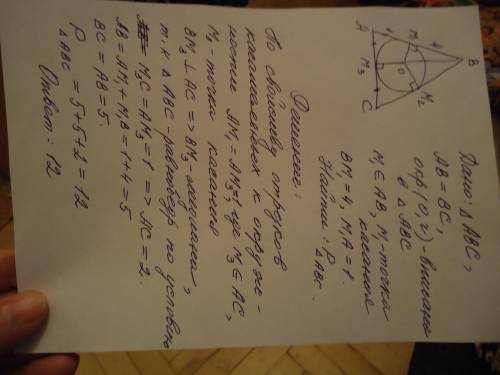 Дано: △ABC,
AB = BC,
окр(O, r) - вписана
в △ABC
M₁ ∈ AB, M₁ - точка
касания
BM₁ = 4, M₁A = 1.
Найти: P △ABC.
B
4
M₁
1
M₂
O
A
M₃
C
Решение:
По свойству отрезков
касательных к окруж-
ности AM₁ = AM₃ = 1, где M₃ ∈ AC,
M₃ - точка касания
BM₃ ⊥ AC => BM₃ - медиана,
т.к △ABC - равнобедр по условию
M₃C = AM₃ = 1 => AC = 2.
AB = AM₁ + M₁B = 1 + 4 = 5
BC = AB = 5.
P △ABC = 5 + 5 + 2 = 12
Ответ: 12